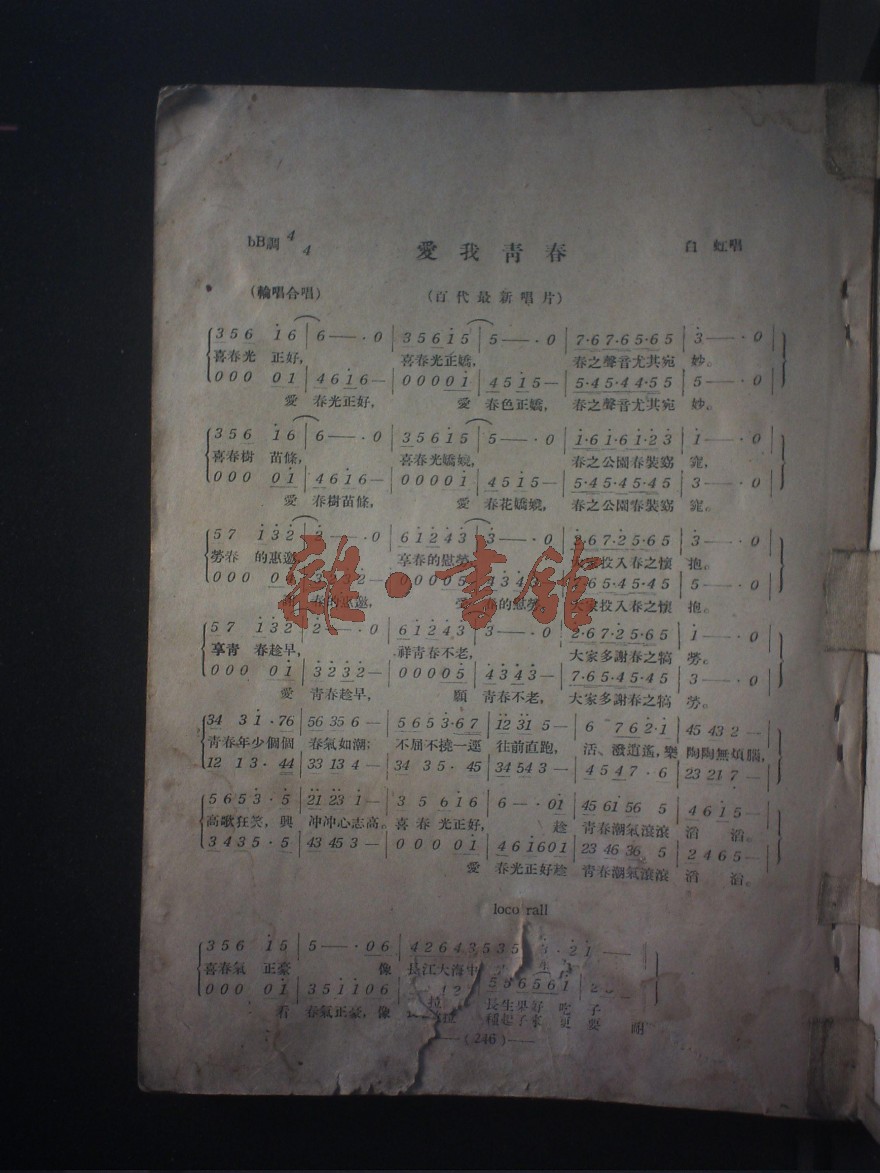 bB調 4/4
愛我青春
白虹唱
(輪唱合唱)
(百代最新唱片)
3 5 6 1̇ 6 | 6 — — · 0 | 3 5 6 1̇ 5 | 5 — — · 0 | 7·6 7·6 5·6 5 | 3̇ — — · 0
喜春光 正好, 喜春光正嬌, 春之聲音尤其宛 妙。
0 0 0 0 1̇ | 4 6 1̇ 6 — | 0 0 0 0 1̇ | 4 5 1̇ 5 — | 5·4 5·4 4·5 5 | 5 — — · 0
愛 春光正好, 愛 春色正嬌, 春之聲音尤其宛 妙。
3 5 6 1̇ 6 | 6 — — · 0 | 3 5 6 1̇ 5 | 5 — — · 0 | 1̇·6 1̇·6 1̇·2̇ 3̇ | 1̇ — — · 0
喜春樹 苗條, 喜春光嬌嬈, 春之公園春裝窈 窕,
0 0 0 0 1̇ | 4 6 1̇ 6 — | 0 0 0 0 1̇ | 4 5 1̇ 5 — | 5·4 5·4 5·4 5 | 3 — — · 0
愛 春樹苗條, 愛 春花嬌嬈, 春之公園春裝窈 窕。
5 7 1̇ 3̇ 2̇ | 2̇ — — · 0 | 6 1̇ 2̇ 4̇ 3̇ | 3̇ — — · 0 | 2̇·6 7·2̇ 5·6 5 | 3̇ — — · 0
勞春 的惠邀, 享春的慰勞, 大家投入春之懷 抱。
0 0 0 0 | 3 2 — | 0 0 0 0 5 | 4 3 4 3 — | 7·6 5·4 5·4 5 | 5 — — · 0
春的惠邀, 春的慰勞, 大家投入春之懷 抱。
5 7 1̇ 3̇ 2̇ | 2̇ — — · 0 | 6 1̇ 2̇ 4̇ 3̇ | 3̇ — — · 0 | 2̇·6 7·2̇ 5·6 5 | 1̇ — — · 0
享青 春趁早, 祥青春不老, 大家多謝春之犒 勞。
0 0 0 0 1̇ | 3 2 3 2 — | 0 0 0 0 5 | 4 3 4 3 — | 7·6 5·4 5·4 5 | 3 — — · 0
愛 青春趁早, 願 青春不老, 大家多謝春之犒 勞。
3 4 3 1̇ · 7 6 | 5 6 3 5 6 — | 5 6 5 3̇ · 6 7 | 1̇ 2̇ 3̇ 1̇ 5 — | 6 7 6 2̇ · 1̇ | 4 5 4 3 2 —
青春年少個個 春氣如潮; 不屈不撓一逕 往前直跑, 活、潑逍遙,樂 陶陶無煩腦,
1 2 1 3 · 4 4 | 3 3 1 3 4 — | 3 4 3 5 · 4 5 | 3 4 5 4 3 — | 4 5 4 7 · 6 | 2 3 2 1 7 —
5 6 5 3̇ · 5 | 2̇ 1̇ 2̇ 3̇ 1̇ — | 3 5 6 1̇ 6 | 6 — — · 0 1̇ | 4 5 6 1̇ 5 6 5 | 4 6 1̇ 5 —
高歌狂笑,興 沖沖心志高。 喜春 光正好, 趁 青春潮氣滾滾 滔 滔。
3 4 3 5 · 5 | 4 3 4 5 3 — | 0 0 0 0 1̇ | 4 6 1̇ 6 0 1̇ | 2 3 4 6 3 6 5 | 2 4 6 5 —
愛 春光正好趁 青春潮氣滾滾 滔 滔。
loco rall
3 5 6 1̇ 5 | 5 — — · 0 6 | 4 2 6 4 3 5 3 5 · 2̇ 1̇ — —
喜春氣 正豪 像 長江大海中
0 0 0 0 1̇ | 3 5 1̇ 1̇ 0 6
看 春氣正豪,像
拉 長生果好 吃 子
拉 種起子來 更 要
—(246)—
雜·書館